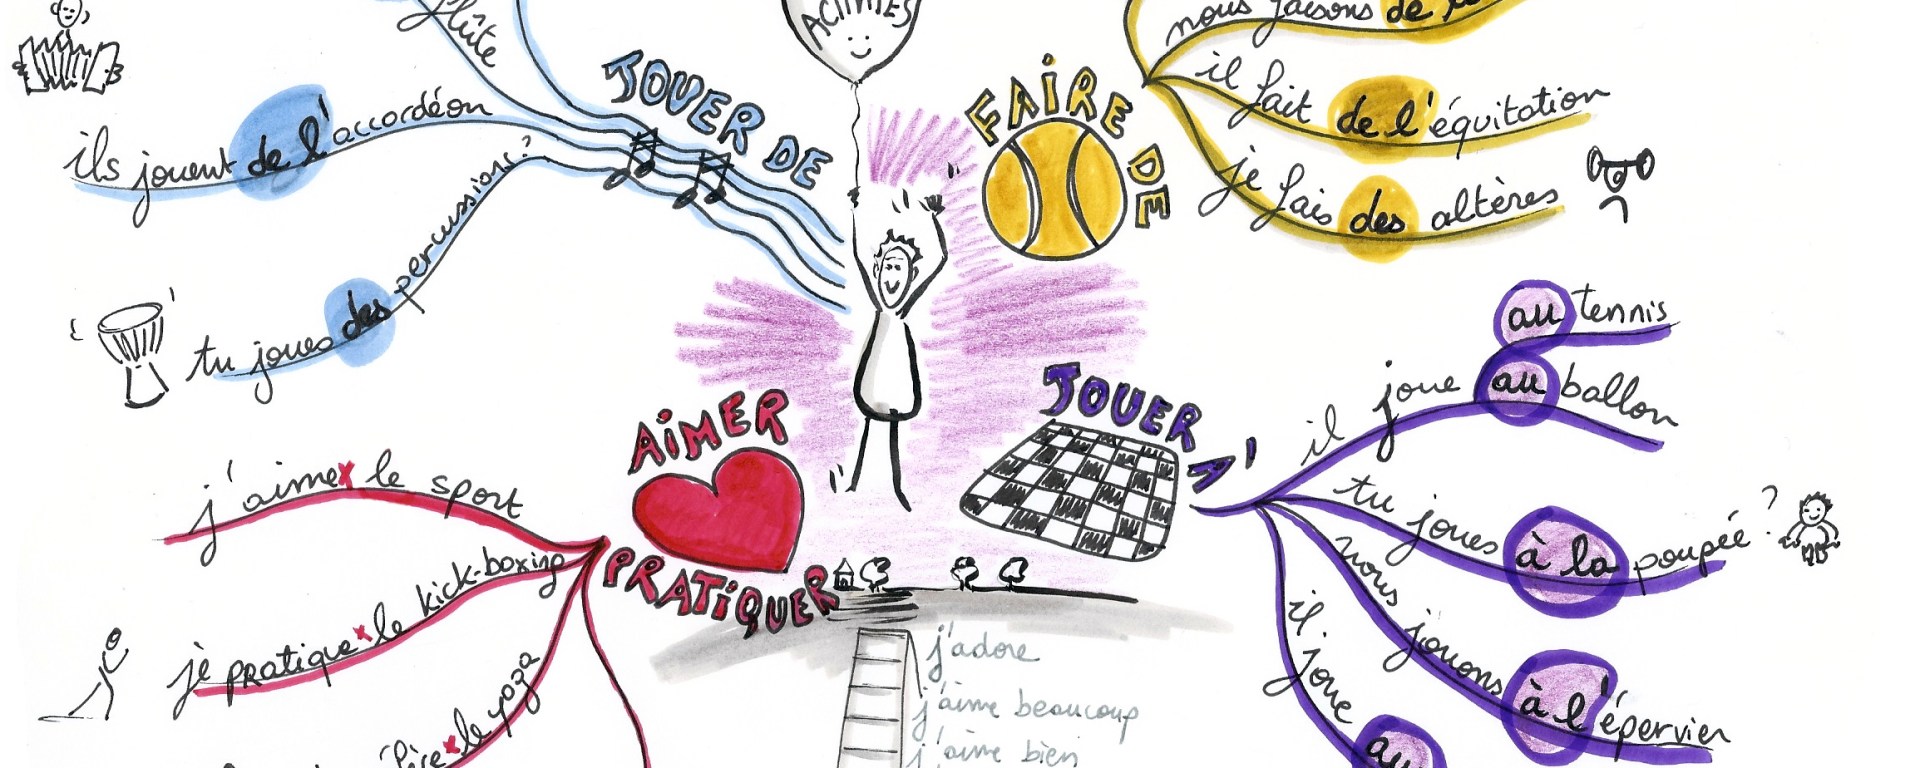 flûte
ils jouent de l'accordéon
tu joues des percussions ?
JOUER DE
ACTIVITÉS
FAIRE DE
nous faisons de
il fait de l'équitation
je fais des altères
AIMER
PRATIQUER
j'aime x le sport
je pratique x le kick-boxing
x le yoga
JOUER A'
il joue au tennis
au ballon
tu joues à la poupée ?
nous jouons à l'épervier
il joue au
j'adore
j'aime beaucoup
j'aime bien